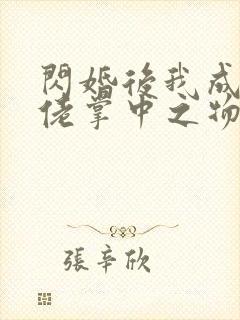 閃婚後我成
佬掌中之物
張辛欣